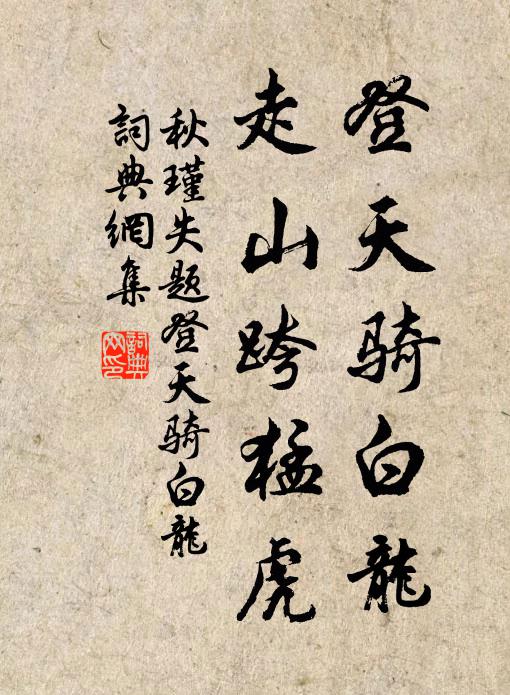 登天骑白龍
走山跨猛虎
秋瑾失题登天骑白龍
詞典網集
詞典網印